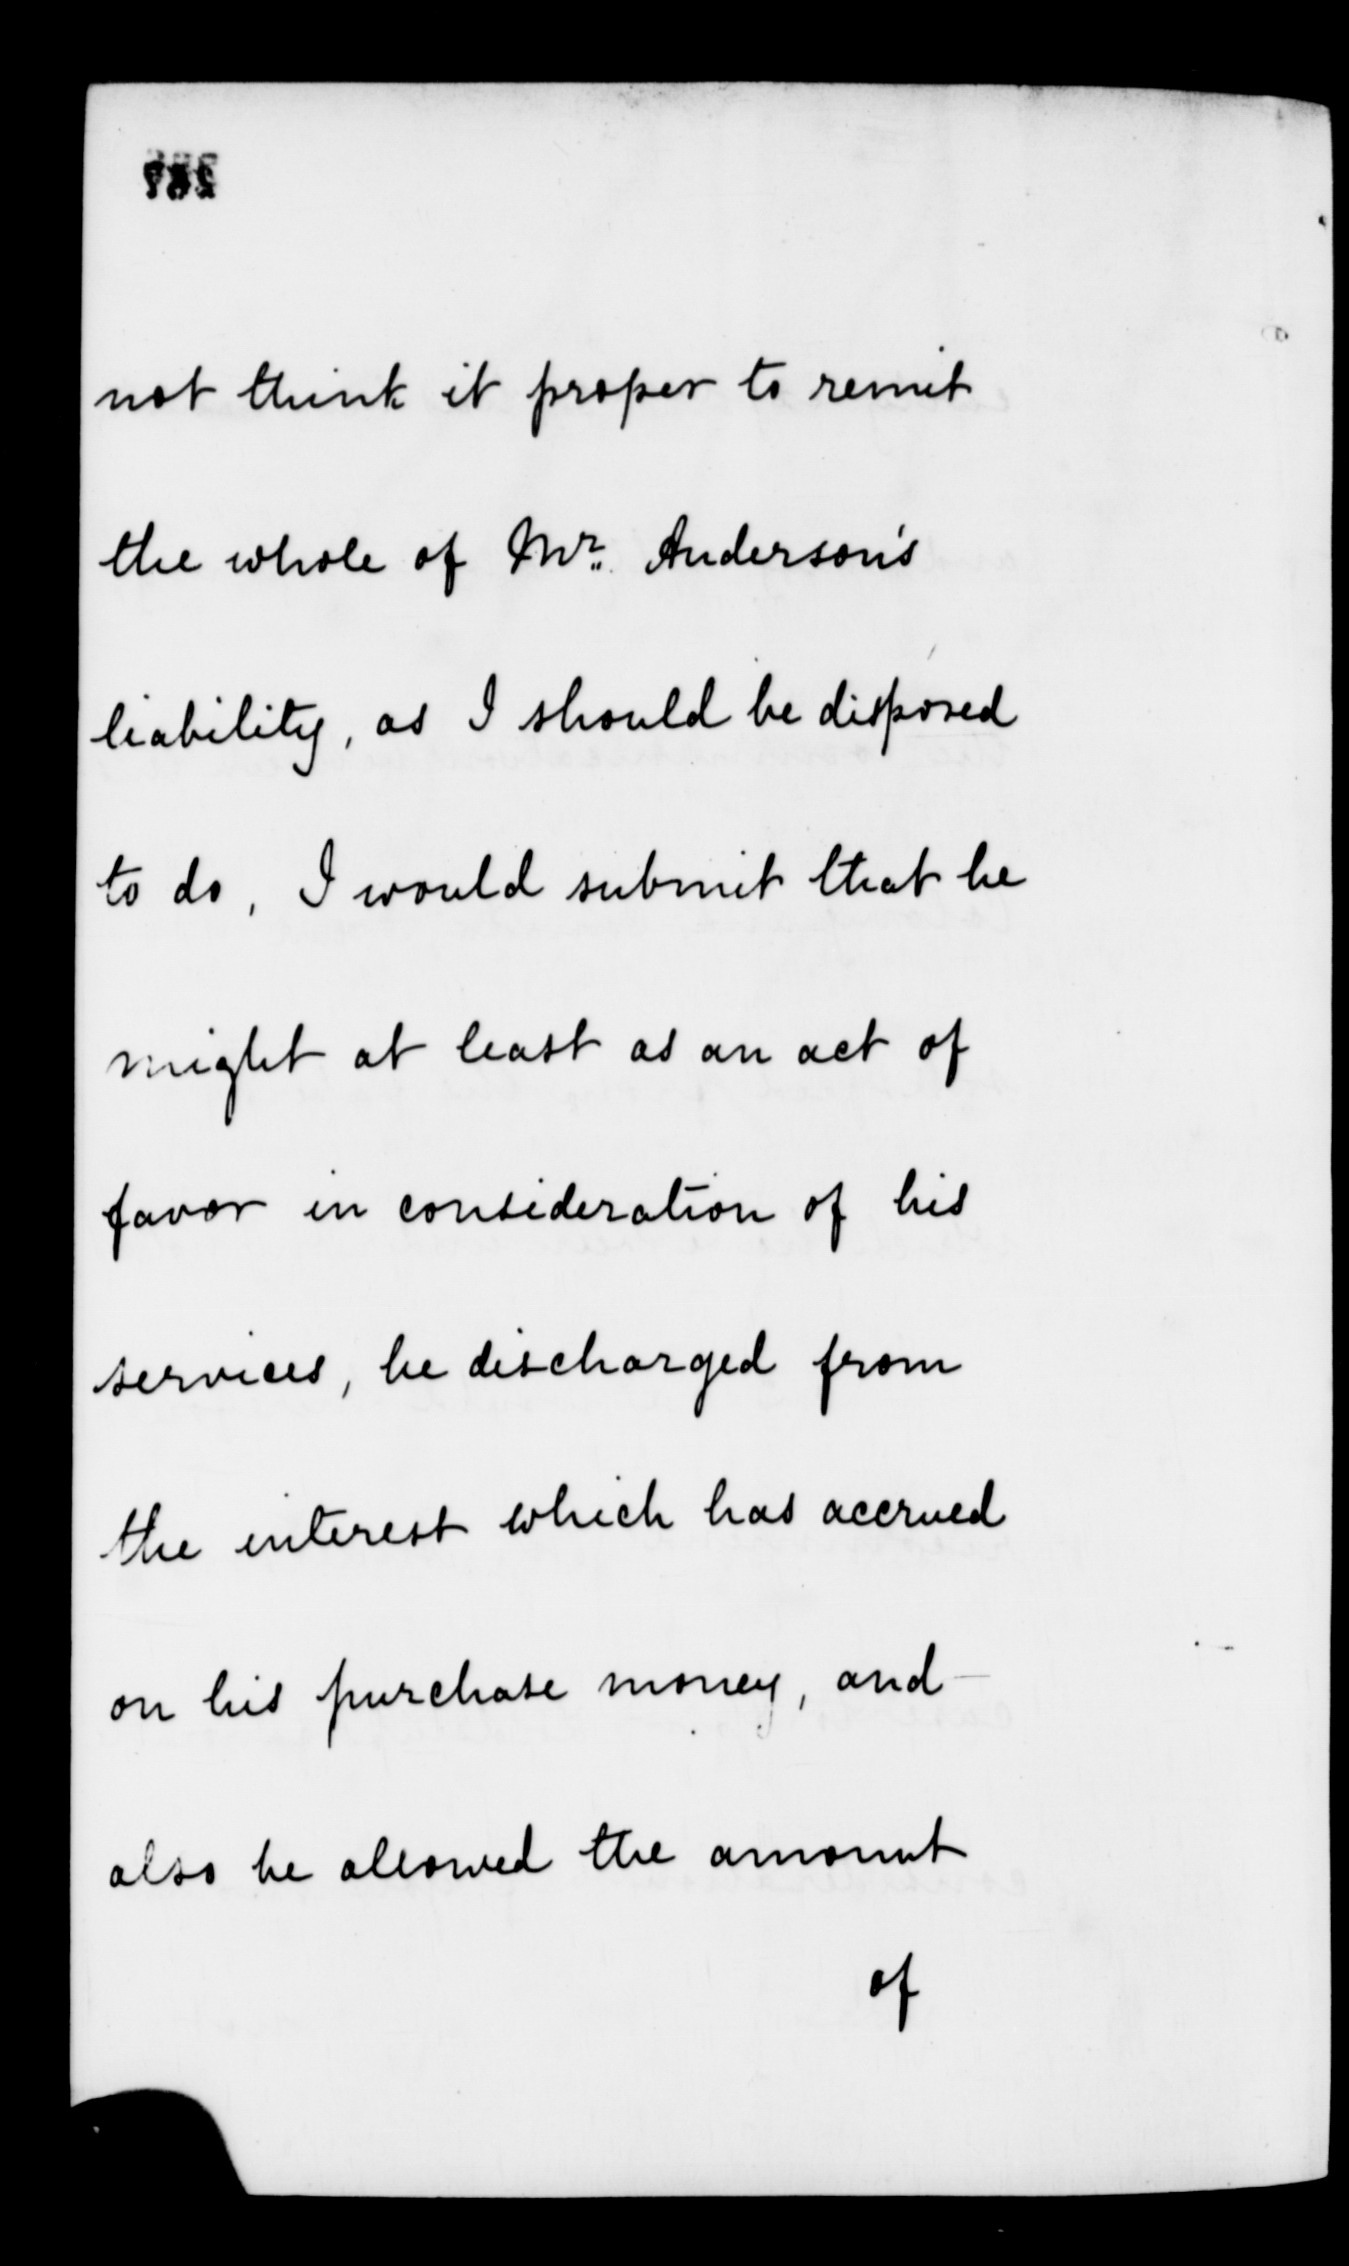 not think it proper to remit
the whole of Mr. Anderson's
liability, as I should be disposed
to do, I would submit that he
might at least as an act of
favor in consideration of his
services, be discharged from
the interest which has accrued
on his purchase money, and
also be allowed the amount
of